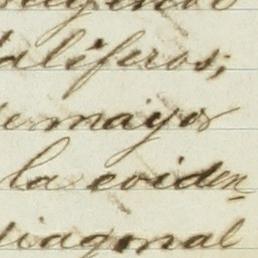 alíferos;
e mayor
la eviden
diagonal